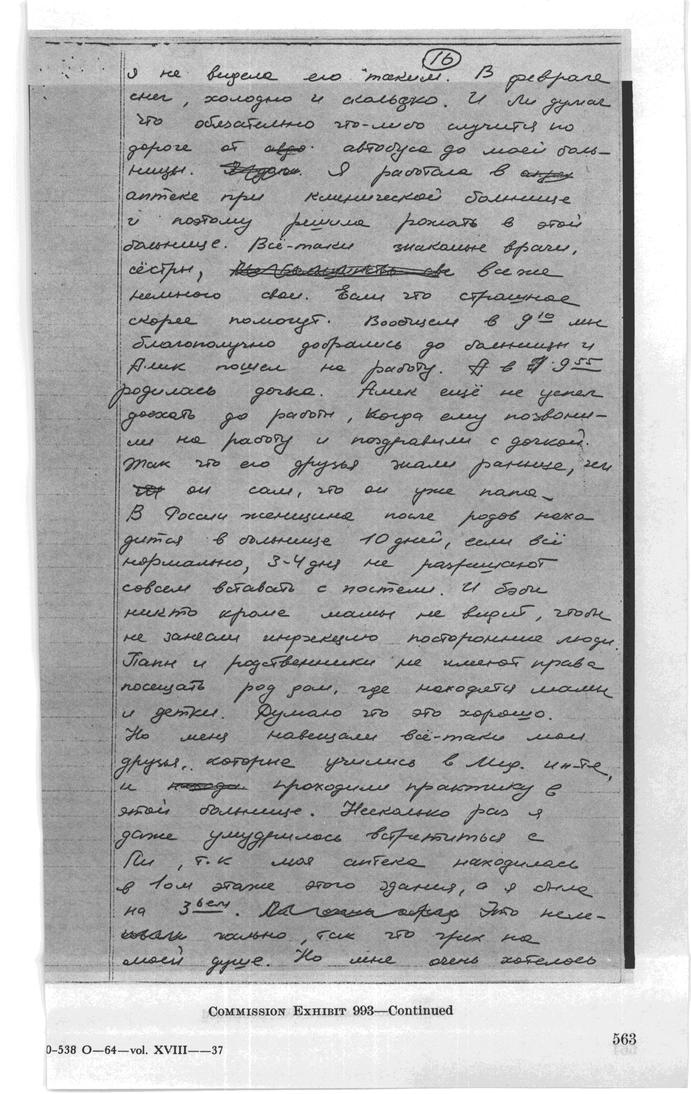 16
я не видела его таким. В феврале
снег, холодно и скользко. И Ли думал
что обязательно что-либо случится по
дороге от автобуса до моей боль-
ницы. Я работала в
аптеке при клинической больнице
и поэтому решила рожать в этой
больнице. Всё-таки знакомые врачи,
сёстры, все же
немного свои. Если что страшное
скорее помогут. Вообщем в 9 10 мы
благополучно добрались до больницы и
Алик пошел на работу. А в 9 55
родилась дочка. Алик ещё не успел
доехать до работы, когда ему позвони-
ли на работу и поздравили с дочкой.
Так что его друзья знали раньше, чем
он сам, что он уже папа.
В России женщина после родов нахо
дится в больнице 10 дней, если всё
нормально, 3-4 дня не разрешают
совсем вставать с постели. И бэби
никто кроме мамы не видит, чтобы
не занесли инфекцию посторонние люди.
Папы и родственники не имеют права
посещать род дом, где находятся мамы
и детки. Думаю что это хорошо.
Но меня навещали всё-таки мои
друзья, которые учились в Мед. ин-те,
и проходили практику в
этой больнице. Несколько раз я
даже умудрилась встретиться с
Ли, т.к моя аптека находилась
в 1ом этаже этого здания, а я была
на 3 ьем. Это неле-
гально, так что грех на
моей душе. Но мне очень хотелось
COMMISSION EXHIBIT 993—Continued
563
0-538 O—64—vol. XVIII——37